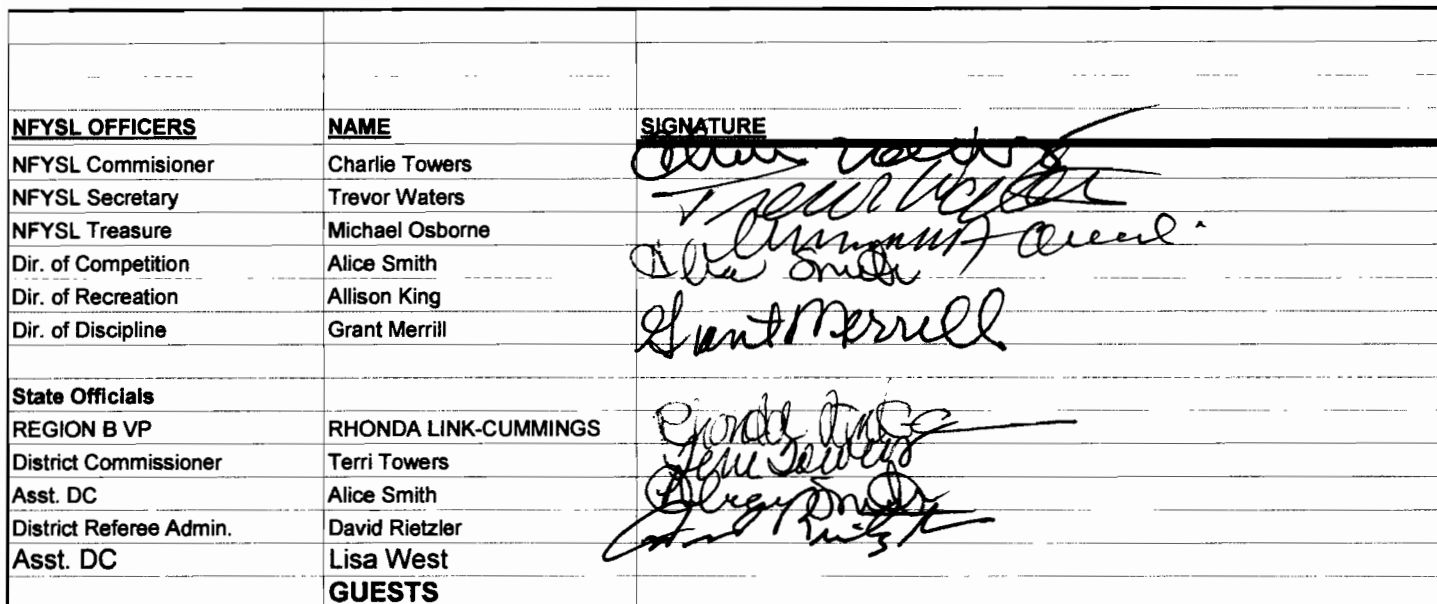 NFYSL OFFICERS NAME SIGNATURE
NFYSL Commisioner Charlie Towers
NFYSL Secretary Trevor Waters Trevor Waters
NFYSL Treasure Michael Osborne
Dir. of Competition Alice Smith Alice Smith
Dir. of Recreation Allison King
Dir. of Discipline Grant Merrill Grant Merrill
State Officials
REGION B VP RHONDA LINK-CUMMINGS Rhonda
District Commissioner Terri Towers Terri Towers
Asst. DC Alice Smith Smith
District Referee Admin. David Rietzler
Asst. DC Lisa West
GUESTS